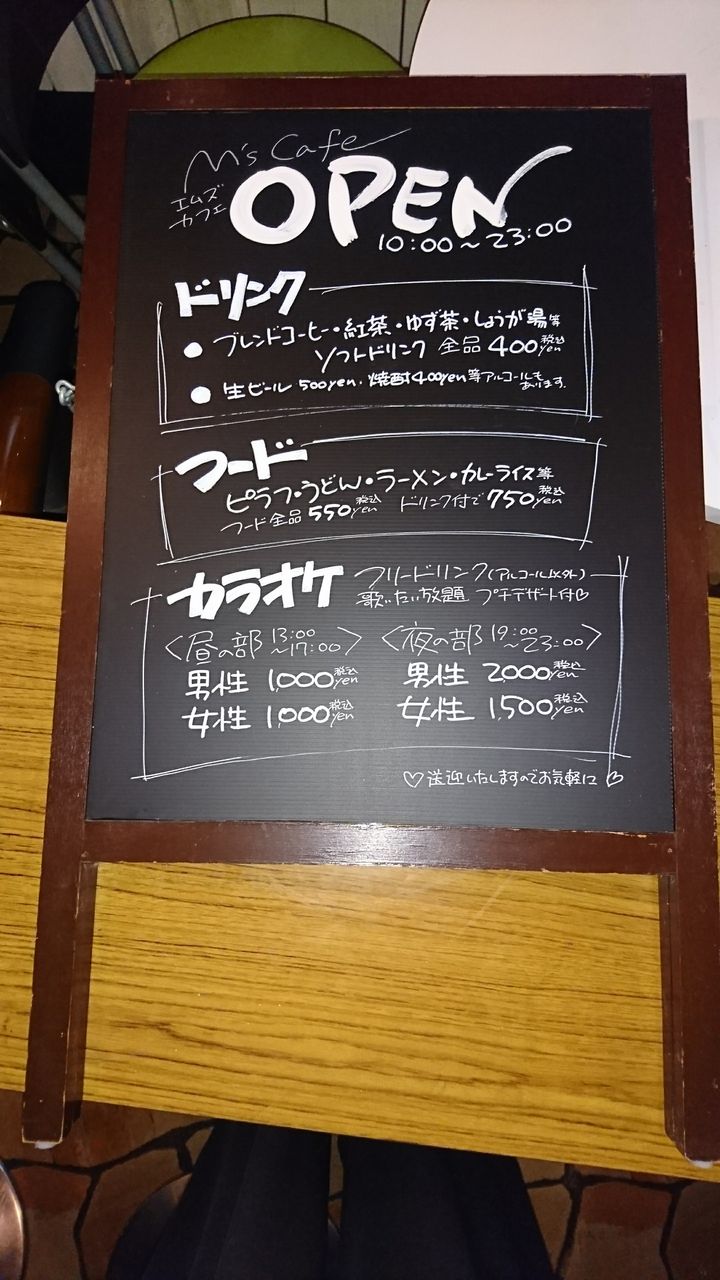 M's Cafe
エムズ
カフェ
OPEN
10:00～23:00
ドリンク
● ブレンドコーヒー・紅茶・ゆず茶・しょうが湯等
ソフトドリンク 全品 400yen 税込
● 生ビール 500yen・焼酎400yen等アルコールもあります。
フード
ピラフ・うどん・ラーメン・カレーライス等
フード全品 550yen 税込 ドリンク付で 750yen 税込
カラオケ フリードリンク(アルコール以外)
歌いたい放題 プチデザート付♡
〈昼の部 13:00～17:00〉 〈夜の部 19:00～23:00〉
男性 1,000yen 税込 男性 2000yen 税込
女性 1,000yen 税込 女性 1,500yen 税込
♡送迎いたしますのでお気軽に♡